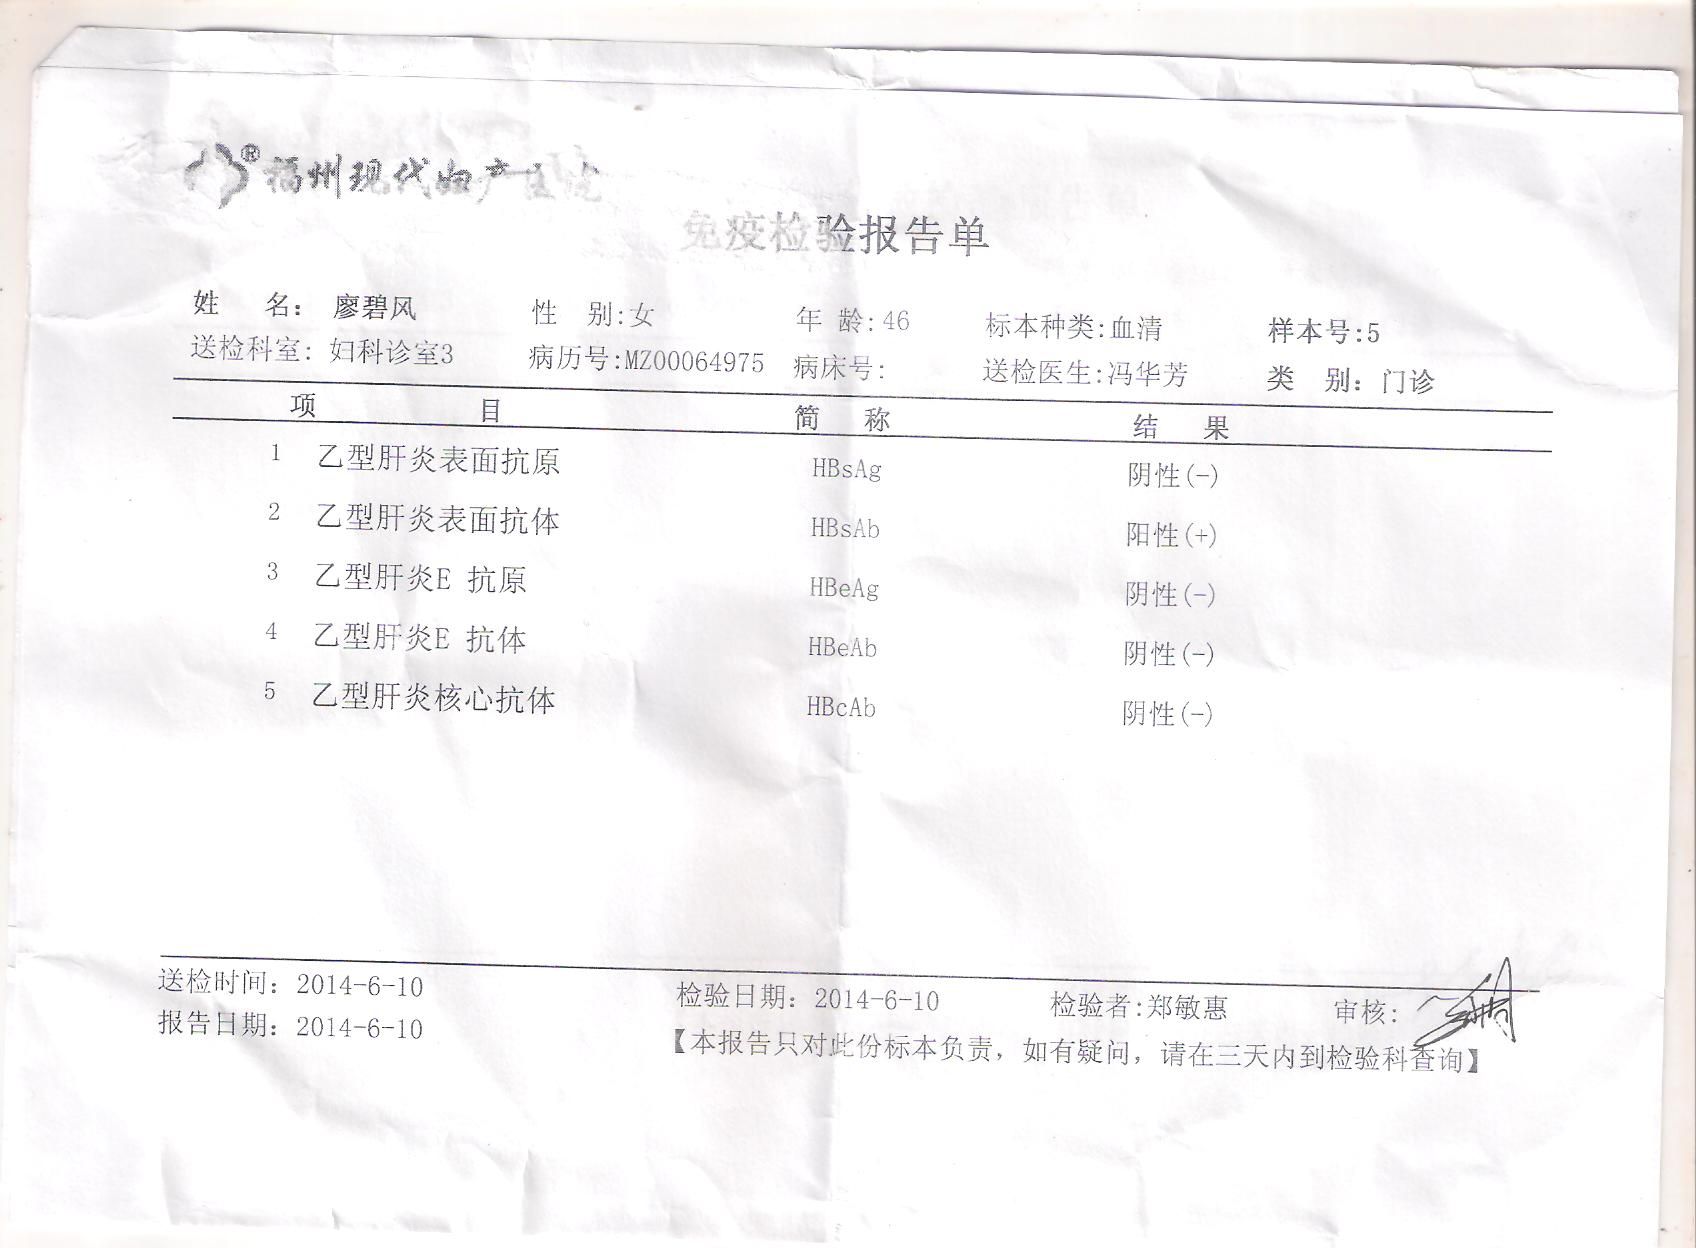 ®福州现代妇产医院
免疫检验报告单
姓 名: 廖碧风 性 别:女 年 龄:46 标本种类:血清 样本号:5
送检科室: 妇科诊室3 病历号:MZ00064975 病床号: 送检医生:冯华芳 类 别: 门诊
项 目 简 称 结 果
1 乙型肝炎表面抗原 HBsAg 阴性(-)
2 乙型肝炎表面抗体 HBsAb 阳性(+)
3 乙型肝炎E 抗原 HBeAg 阴性(-)
4 乙型肝炎E 抗体 HBeAb 阴性(-)
5 乙型肝炎核心抗体 HBcAb 阴性(-)
送检时间: 2014-6-10 检验日期: 2014-6-10 检验者:郑敏惠 审核:
报告日期: 2014-6-10 【本报告只对此份标本负责, 如有疑问, 请在三天内到检验科查询】